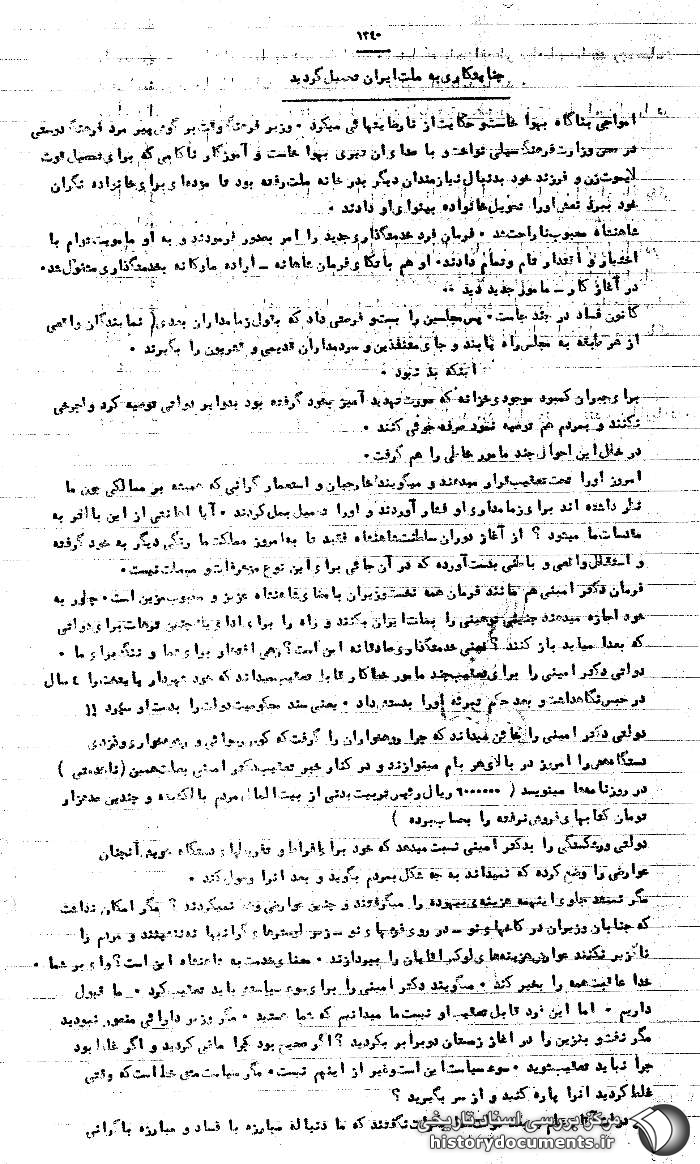 ۱۳۴۰
جنایتکاری به ملت ایران تحمیل گردید
امواجی بناگاه بهوا خاست و حکایت از نارضایتیها می‌کرد . وزیر فرهنگ وقت بر گوش پیر مرد فرهنگ دوستی
در صحن وزارت فرهنگ سیلی نواخت و با صدای تیری بهوا خاست و آموزگار ناکامی که برای تحصیل قوت
لایموت زن و فرزند خود بدنبال نیازمندان دیگر بدر خانه ملت رفته بود تا مژده‌ای برای خانواده نگران
خود ببرد نعش او را تحویل خانواده بینوای او دادند .
شاهنشاه محبوب ناراحت شد . فرمان فرد خدمتگذاری جدید را امر بصدور فرمودند و به او ماموریت توام با
اختیار و اقتدار تام و تمام دادند . او هم با تکای فرمان شاهانه – اراده ملوکانه بخدمتگذاری مشغول شد .
در آغاز کار – مامور جدید دید ..
کانون فساد در چند جاست . پس مجلسین را بست و فرصتی داد که بقول زمامداران بعدی ( نمایندگان واقعی
از هر طبقه به مجلس راه یابند و جای متنفذین و سردمداران قدیمی و قشریون را بگیرند .
اینکه بد نبود .
برای جبران کمبود موجودی خزانه که صورت تهدید آمیز بخود گرفته بود بدوایر دولتی توصیه کرد ولخرجی
نکنند و بمردم هم توصیه نمود صرفه جوئی کنند .
در خلال این احوال چند مامور خاطی را هم گرفت .
امروز او را تحت تعقیب قرار میدهند و میگویند خارجیان و استعمار گرانی که همیشه بر ممالکی چون ما
نظر داشته اند برای زمامداری او فشار آوردند و او را تحمیل بملل کردند . آیا اهانتی از این بالاتر به
مقدسات ما میشود ؟ از آغاز دوران سلطنت شاهنشاه فقید تا به امروز مملکت ما رنگی دیگر به خود گرفته
و استقلال واقعی و باطنی بدست آورده که در آن جائی برای این نوع مزخرفات و مهملات نیست .
فرمان دکتر امینی هم مانند فرمان همه نخست وزیران با مضای شاهنشاه عزیز و محبوب مزین است . چطور به
خود اجازه میدهند چنین توهینی را بملت ایران بکنند و راه را برای ادای چنین ترهات برای دولتی
که بعدا میاید باز کنند ؟ معنی خدمتگذاری صادقانه این است ؟ زهی افتخار برای شما و ننگ برای ما .
دولتی دکتر امینی را برای تعقیب چند مامور خطاکار قابل تعقیب میداند که خود شهردار پایتخت را ٤ سال
در حبس نگاهداشت و بعد حکم تبرئه او را بدستش داد . یعنی سند محکومیت دولت را بدست او سپرد !!
دولتی دکتر امینی را خائن میداند که چرا رشوه خواران را گرفت که کوس رسوائی و رشوه خواری و دزدی
دستگاهش را امروز در بالای هر بام مینوازند و در کنار خبر تعقیب دکتر امینی بعلت همین
در روزنامه ها مینویسد ( ۶۰۰۰۰۰۰ ریال رئیس تربیت بدنی از بیت المال مردم بالا کشیده و چندین صد هزار
تومان کتابهای فروش نرفته را بحساب برده )
دولتی ورشکستگی را بدکتر امینی نسبت میدهد که خود برای افراط و تفریطهای دستگاه خویش آنچنان
عوارضی را وضع کرده که نمیداند به چه شکل بمردم بگوید و بعد آنرا وصول کند .
مگر نمیشد جلوی اینهمه هزینه‌ی بیهوده را میگرفتند و چنین عوارضی وضع نمیکردند ؟ مگر امکان نداشت
که جنابان وزیران در کاخهای نو – در روی فرشهای نو – زیر لوسترهای گرانبها نه نشینند و مردم را
ناگزیر نکنند عوارض هزینه‌های لوکس آقایان را بپردازند . معنای خدمت به شاهنشاه این است ؟ وای بر شما .
خدا عاقبت همه را بخیر کند . میگویند دکتر امینی را برای سوء سیاستش باید تعقیب کرد . ما قبول
داریم . اما این فرد قابل تعقیب او نیست ما میدانیم که شما هستید . مگر وزیر دارائی منصور نبودید
مگر نفت و بنزین را در آغاز زمستان دو برابر نکردید ؟ اگر صحیح بود چرا ملغی کردید و اگر غلط بود
چرا نباید تعقیب شوید . سوء سیاست این است و غیر از اینهم نیست . مگر سیاست مشق خط است که وقتی
غلط کردید آنرا پاره کنید و از سر بگیرید ؟
نگفتند که ما دنباله مبارزه با فساد و مبارزه با گرانی
مرکز بررسی اسناد تاریخی
historydocuments.ir